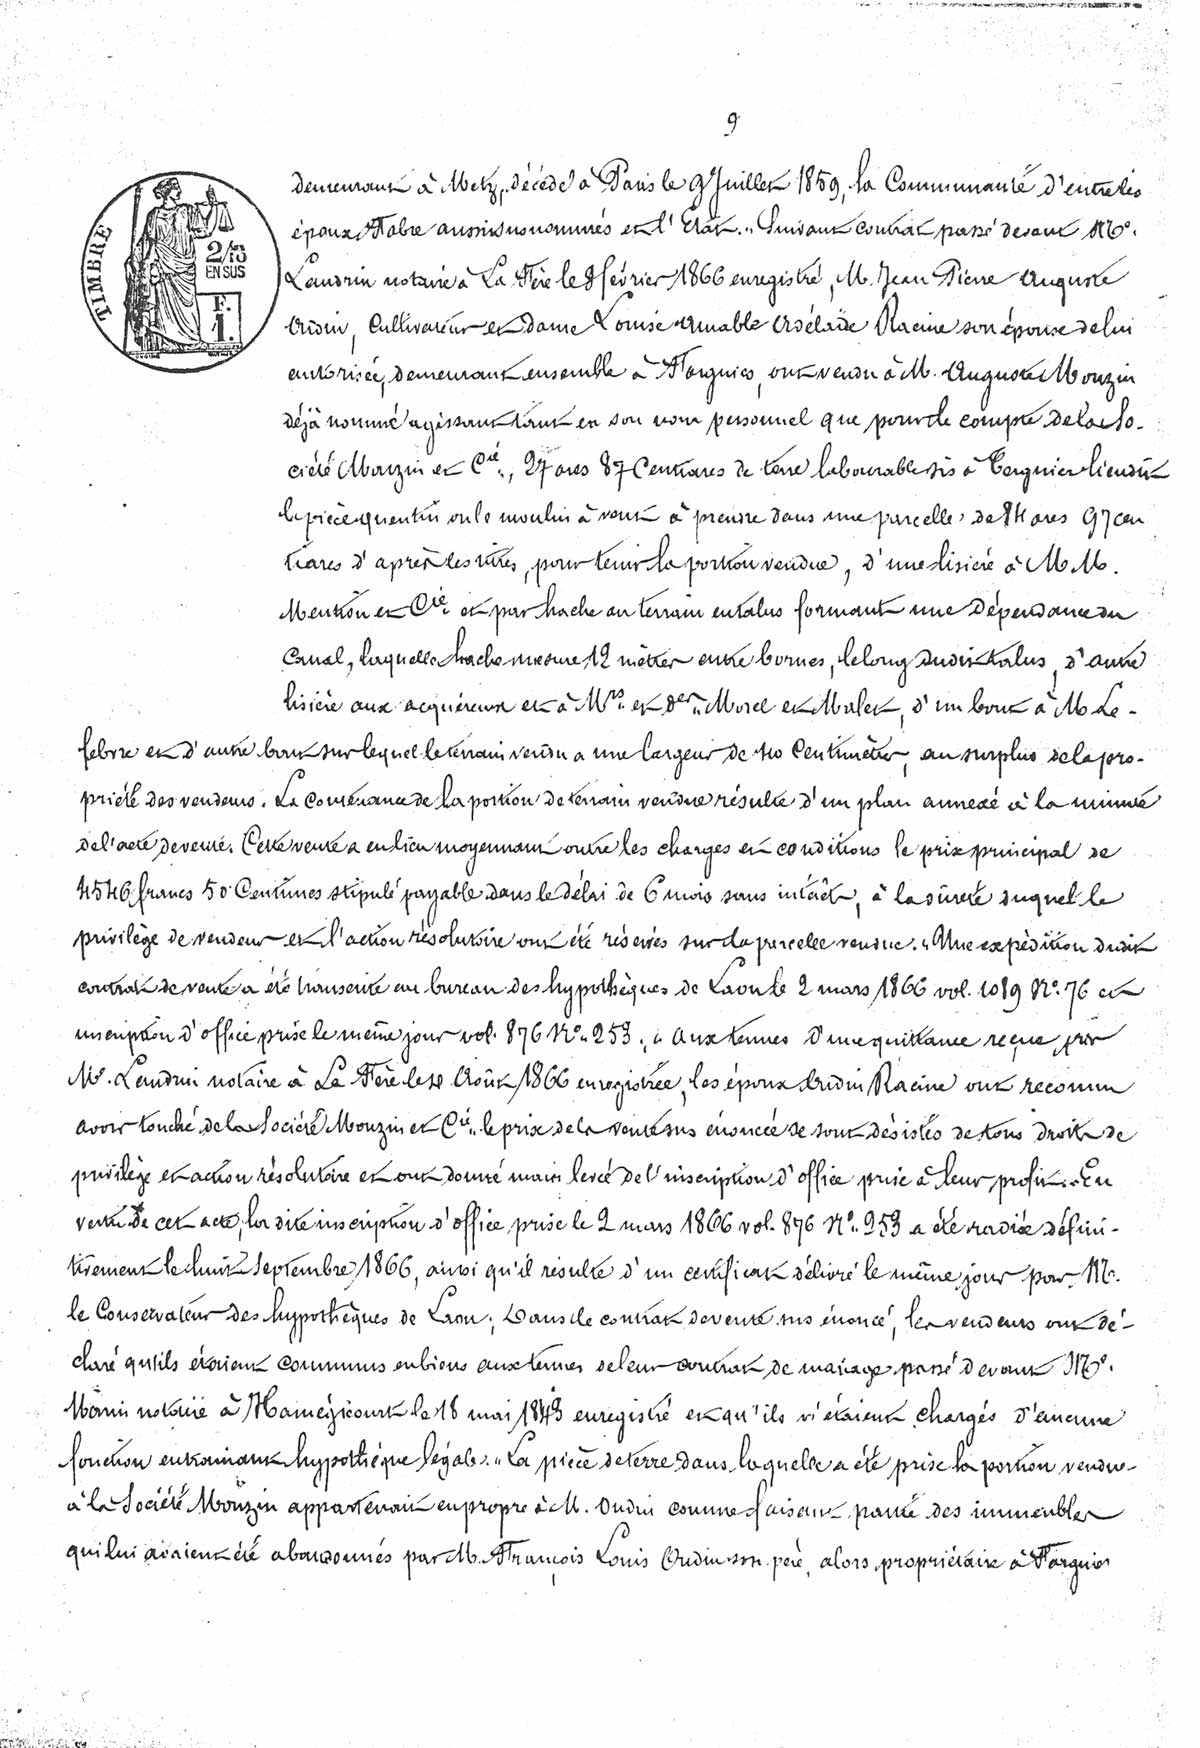 9
TIMBRE
2/10
EN SUS
F.
1.
demeurant à Metz, décédé à Paris le 9 Juillet 1859, la Communauté d'entre les
époux Fabre aussi susnommés et l'Etat. " Suivant contrat passé devant Me.
Landrin notaire à La Fère le 8 février 1866 enregistré, M. Jean Pierre Auguste
Oudin, Cultivateur et dame Louise Amable Adélaïde Racine son épouse de lui
autorisée, demeurant ensemble à Fargniers, ont vendu à M. Auguste Mouzin
déjà nommé agissant tant en son nom personnel que pour le compte de la So-
ciété Mouzin et Cie., 27 ares 87 Centiares de terre labourable sis à Tergnier lieudit
la pièce quentin ou le moulin à vent à prendre dans une parcelle de 84 ares 97 cen
tiares d'après les titres, pour tenir la portion vendue, d'une lisière à M M.
Mention et Cie. et par hache au terrain en talus formant une dépendance du
Canal, laquelle hache mesure 12 mètres entre bornes, le long dudit talus, d'autre
lisière aux acquéreurs et à Mrs. et der. Morel et Malet, d'un bout à M. Le-
febvre et d'autre bout sur lequel le terrain vendu a une largeur de 40 Centimètres, au surplus de la pro-
priété des vendeurs. La Contenance de la portion de terrain vendue résulte d'un plan annexé à la minute
de l'acte de vente. Cette vente a eu lieu moyennant outre les charges et conditions le prix principal de
4546 francs 50 Centimes stipulé payable dans le délai de 6 mois sans intérêt, à la sûreté duquel le
privilège de vendeur et l'action résolutoire ont été réservés sur la parcelle vendue. " Une expédition dudit
contrat de vente a été transcrite au bureau des hypothèques de Laon le 2 mars 1866 vol. 1019 No. 76 et
inscription d'office prise le même jour vol. 876 No. 253. " Aux termes d'une quittance reçue par
Me. Landrin notaire à La Fère le Août 1866 enregistrée, les époux Oudin Racine ont reconnu
avoir touché de la Société Mouzin et Cie. le prix de la vente sus énoncée se sont désistés de tous droits de
privilège et action résolutoire et ont donné main levée de l'inscription d'office prise à leur profit. " En
vertu de cet acte, la dite inscription d'office prise le 2 mars 1866 vol. 876 No. 253 a été radiée défini-
tivement le huit Septembre 1866, ainsi qu'il résulte d'un certificat délivré le même jour par M.
le Conservateur des hypothèques de Laon; Dans le contrat de vente sus énoncé, les vendeurs ont dé-
claré qu'ils étaient communs en biens aux termes de leur contrat de mariage passé devant Me.
notaire à le 18 mai 1843 enregistré et qu'ils n'étaient chargés d'aucune
fonction entrainant hypothèque légale. " La pièce de terre dans laquelle a été prise la portion vendue
à la Société Mouzin appartenait en propre à M. Oudin comme faisant partie des immeubles
qui lui avaient été abandonnés par M. François Louis Oudin son père, alors propriétaire à Fargniers